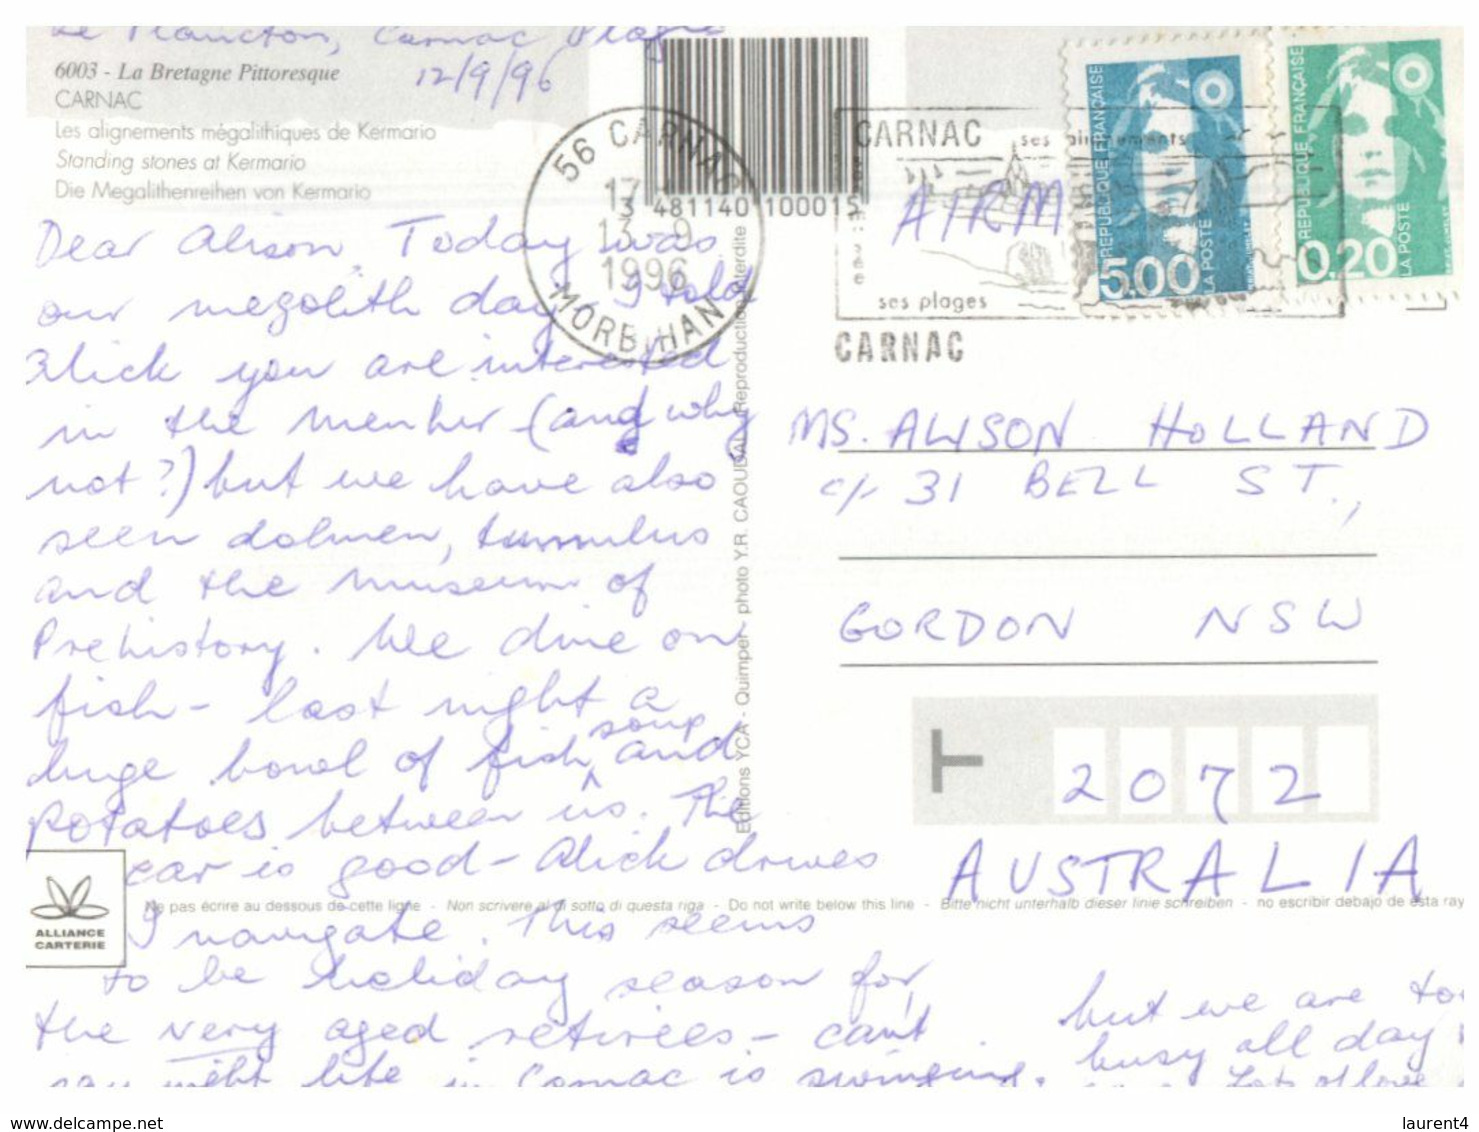 Le Plancton, Carnac Plage
12/9/96
6003 - La Bretagne Pittoresque
CARNAC
Les alignements mégalithiques de Kermario
Standing stones at Kermario
Die Megalithenreihen von Kermario
3 481140 100015
56 CARNAC
17
13 - 9
1996
MORBIHAN
CARNAC
ses alignements
ses plages
CARNAC
AIRM
REPUBLIQUE FRANÇAISE
5.00
LA POSTE
REPUBLIQUE FRANÇAISE
0,20
LA POSTE
Dear Alison, Today was
our megolith day. I told
Alick you are interested
in the menhir (and why
not?) but we have also
seen dolmen, tumulus
and the museum of
Prehistory. We dine on
fish - last night a
huge bowl of fish soup and
potatoes between us. The
car is good - Alick drives
I navigate. This seems
to be holiday season for
the very aged retirees - can't
say night life in Carnac is swinging.
but we are too
busy all day
Lots of love
Editions YCA - Quimper - photo Y.R. CAOUDAL - Reproduction interdite
MS. ALISON HOLLAND
c/- 31 BELL ST.,
GORDON NSW
T
2072
AUSTRALIA
ALLIANCE
CARTERIE
Ne pas écrire au dessous de cette ligne - Non scrivere al di sotto di questa riga - Do not write below this line - Bitte nicht unterhalb dieser linie schreiben - no escribir debajo de esta ray
www.delcampe.net
laurent4